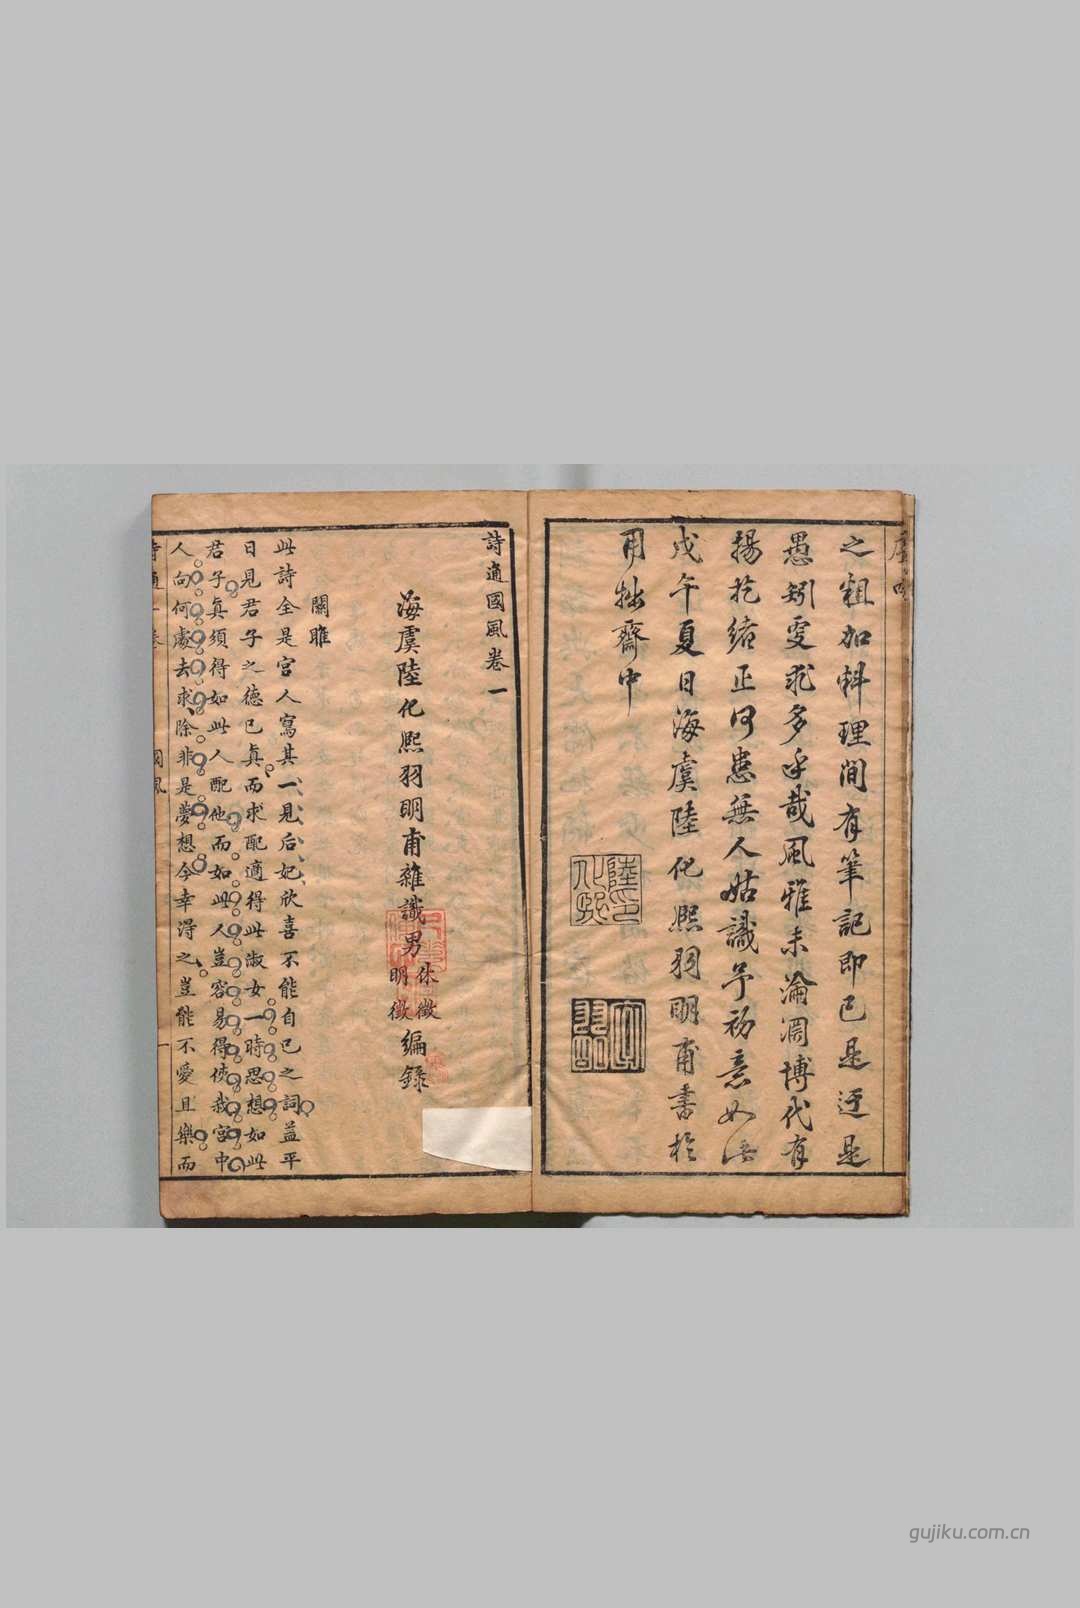 之粗加料理間有筆記即已是迂是
愚矧更求多乎哉風雅未淪罔博代有
揚扢緒正何患無人姑識予初意如此
戊午夏日海虞陸化熙羽明甫書於
用拙齋中
陸印化熙
詩通國風卷一
海虞陸化熙羽明甫雜識男
休徵
明徵
編錄
關雎
此詩全是宮人寫其一見后妃欣喜不能自已之詞益平
日見君子之德已真而求配適得此淑女一時思想如此
君子真須得如此人配他而如此人豈容易得使我宮中
人向何處去求除非是夢想今幸得之豈能不愛且樂而
國風
一
gujiku.com.cn